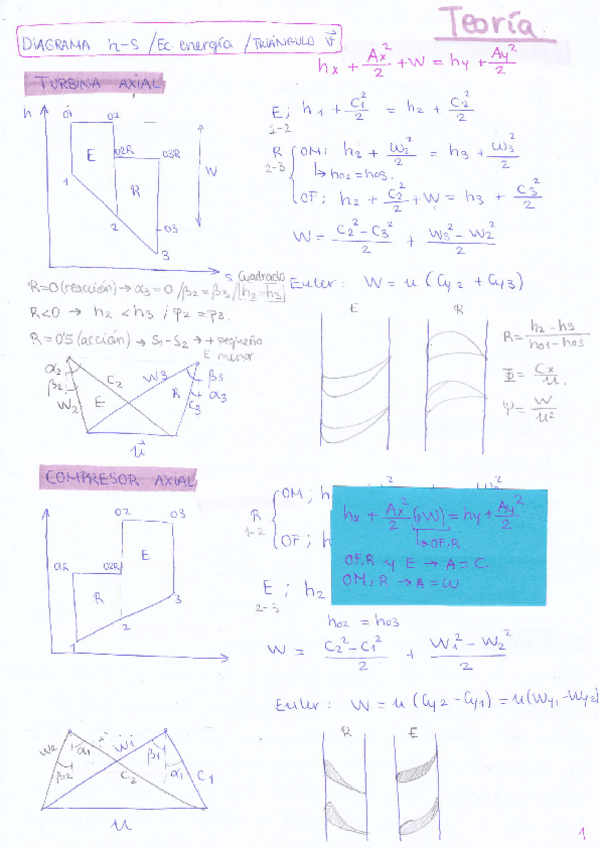 Teoría
DIAGRAMA h-s / Ec. energía / TRIÁNGULO v⃗
hx + Ax²/2 + W = hy + Ay²/2
TURBINA AXIAL
h
01 02
E
02R 03R
W
1
R
2
03
3
s
E; h1 + C1²/2 = h2 + C2²/2
1-2
R
2-3
OM: h2 + W2²/2 = h3 + W3²/2
↳ h02 = h03.
OF; h2 + C2²/2 + W = h3 + C3²/2
W = (C2² - C3²)/2 + (W3² - W2²)/2
Cuadrado
Euler: W = u (Cy2 + Cy3)
R=0 (reacción) → α3 = 0 / β2 = β3 / h2 = h3
R<0 → h2 < h3 ; p2 = p3.
R = 0'5 (acción) → S1-S2 → + pequeño
E menor.
E R
R = (h2 - h3)/(h01 - h03)
Φ = Cx/u.
Ψ = W/u²
α2
β2
W2
C2
E
W3
R
C3
β3
α3
u⃗
COMPRESOR AXIAL
02 03
E
0R 02R
R
1
2
3
R
1-2
OM; h
OF; h
hx + Ax²/2 (+W) = hy + Ay²/2
↳ OF, R
OF, R y E → A = C.
OM, R → A = W
E; h2
2-3
h02 = h03
W = (C2² - C1²)/2 + (W1² - W2²)/2
Euler: W = u (Cy2 - Cy1) = u(Wy1 - Wy2)
R E
W2
β2
α2
W1
C2
β1
α1
C1
u
1